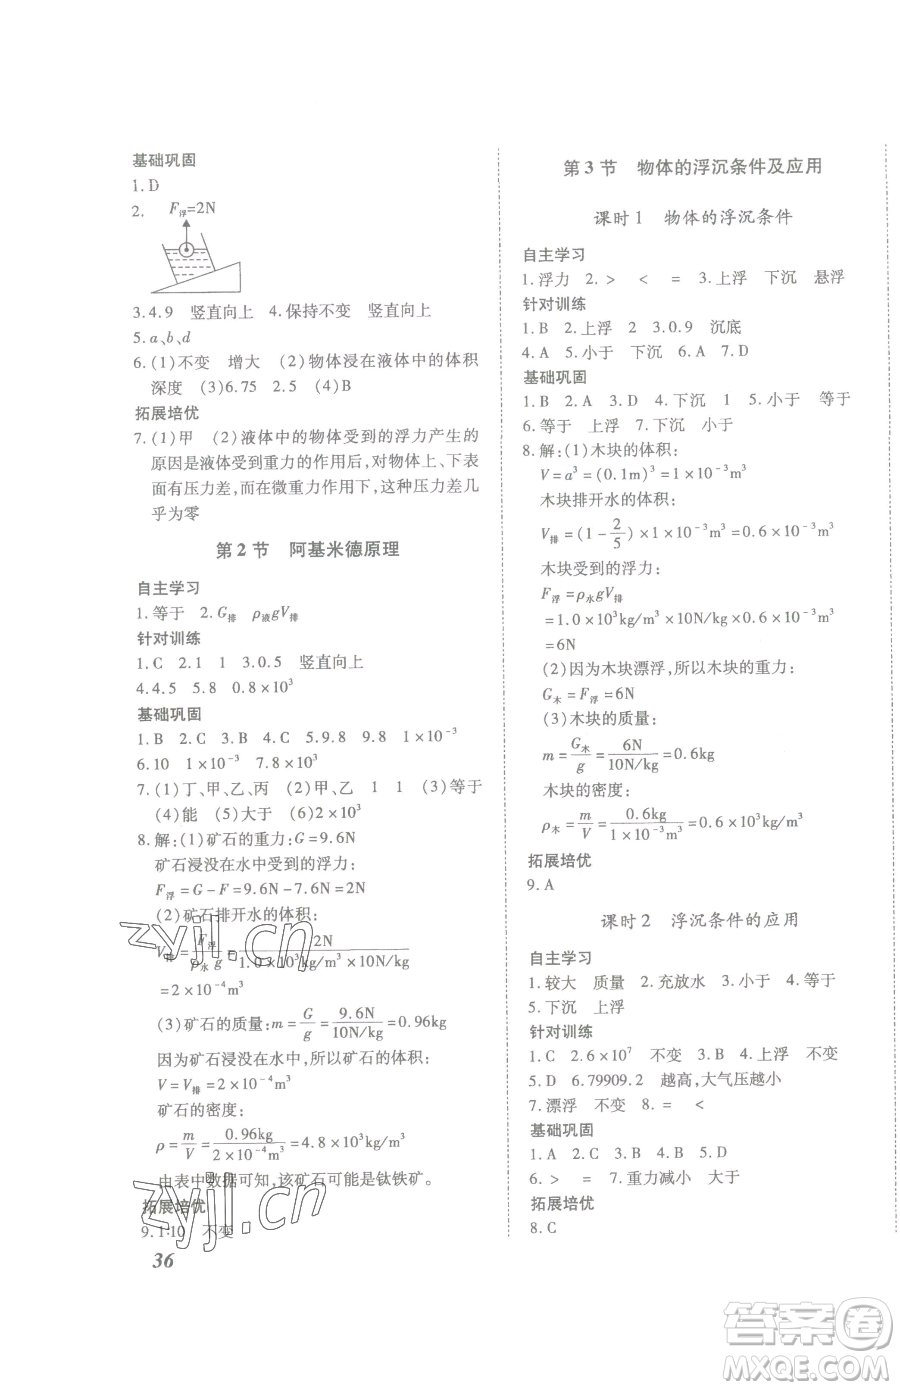 基础巩固
1.D
2. F浮=2N
3.4.9 竖直向上 4.保持不变 竖直向上
5.a、b、d
6.(1)不变 增大 (2)物体浸在液体中的体积
深度 (3)6.75 2.5 (4)B
拓展培优
7.(1)甲 (2)液体中的物体受到的浮力产生的
原因是液体受到重力的作用后,对物体上、下表
面有压力差,而在微重力作用下,这种压力差几
乎为零
第2节 阿基米德原理
自主学习
1.等于 2.G排 ρ液gV排
针对训练
1.C 2.1 1 3.0.5 竖直向上
4.4.5 5.8 0.8×10³
基础巩固
1.B 2.C 3.B 4.C 5.9.8 9.8 1×10⁻³
6.10 1×10⁻³ 7.8×10³
7.(1)丁、甲、乙、丙 (2)甲、乙 1 1 (3)等于
(4)能 (5)大于 (6)2×10³
8.解:(1)矿石的重力:G=9.6N
矿石浸没在水中受到的浮力:
F浮=G-F=9.6N-7.6N=2N
(2)矿石排开水的体积:
V排=F浮/ρ水g=2N/1.0×10³kg/m³×10N/kg
=2×10⁻⁴m³
(3)矿石的质量:m=G/g=9.6N/10N/kg=0.96kg
因为矿石浸没在水中,所以矿石的体积:
V=V排=2×10⁻⁴m³
矿石的密度:
ρ=m/V=0.96kg/2×10⁻⁴m³=4.8×10³kg/m³
由表中数据可知,该矿石可能是钛铁矿。
拓展培优
9.1:10 不变
36
第3节 物体的浮沉条件及应用
课时1 物体的浮沉条件
自主学习
1.浮力 2.> < = 3.上浮 下沉 悬浮
针对训练
1.B 2.上浮 2 3.0.9 沉底
4.A 5.小于 下沉 6.A 7.D
基础巩固
1.B 2.A 3.D 4.下沉 1 5.小于 等于
6.等于 上浮 7.下沉 小于
8.解:(1)木块的体积:
V=a³=(0.1m)³=1×10⁻³m³
木块排开水的体积:
V排=(1-2/5)×1×10⁻³m³=0.6×10⁻³m³
木块受到的浮力:
F浮=ρ水gV排
=1.0×10³kg/m³×10N/kg×0.6×10⁻³m³
=6N
(2)因为木块漂浮,所以木块的重力:
G木=F浮=6N
(3)木块的质量:
m=G木/g=6N/10N/kg=0.6kg
木块的密度:
ρ木=m/V=0.6kg/1×10⁻³m³=0.6×10³kg/m³
拓展培优
9.A
课时2 浮沉条件的应用
自主学习
1.较大 质量 2.充放水 3.小于 4.等于
5.下沉 上浮
针对训练
1.C 2.6×10⁷ 不变 3.B 4.上浮 不变
5.D 6.79909.2 越高,大气压越小
7.漂浮 不变 8.= <
基础巩固
1.A 2.C 3.B 4.B 5.D
6.> = 7.重力减小 大于
拓展培优
8.C
zyjl.cn
zyjl.cn
答案圈
MXQE.COM